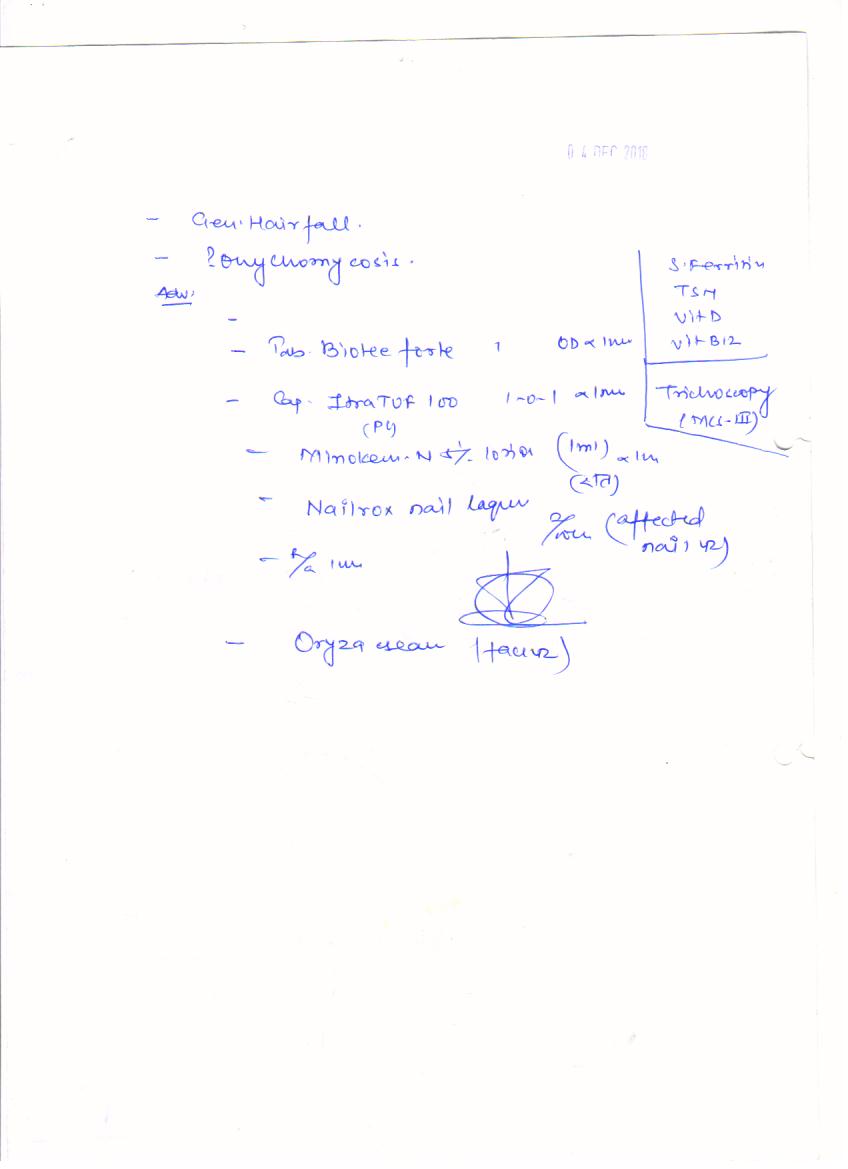 04 DEC 2018
- Gen. Hairfall.
- ? Onychomycosis.
Adv:
S. Ferritin
TSH
Vit D
Vit B12
Trichoscopy
-
- Tab. Biotee forte 1 OD x 1m
- Cap. ItraTUF 100 1-0-1 x 1m
- Minokem-N 5% lotion (1ml) x 1m
(रात्री)
- Nailrox nail laquer (affected
nail वर)
- R/a 1m
- Oryza cream